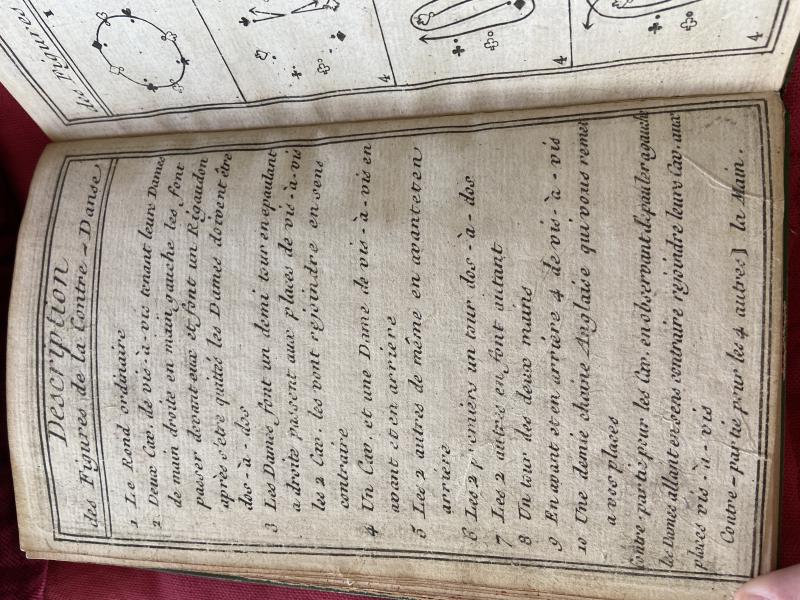 Description
des Figures de la Contre-Danse
1 Le Rond ordinaire
2 Deux Cav. de vis-à-vis tenant leurs Dames
de main droite en main gauche les font
passer devant eux et font un Rigaudon
après s'etre quittés les Dames doivent être
dos-à-dos
3 Les Dames font un demi tour en epaulant
a droite passent aux places de vis-à-vis
les 2 Cav. les vont rejoindre en sens
contraire
4 Un Cav. et une Dame de vis-à-vis en
avant et en arriere
5 Les 2 autres de même en avant et en
arriere
6 Les 2 premiers un tour dos-à-dos
7 Les 2 autres en font autant
8 Un tour des deux mains
9 En avant et en arriére 4 de vis-à-vis
10 Une demie chaine Anglaise qui vous remet
a vos places
Contre-partie pour les Cav. en observant d'epauler a gauche
les Dames allant en sens contraire rejoindre leurs Cav. aux
places vis-à-vis
Contre-partie pour les 4 autres] la Main.
des Figures
1
4
4
4